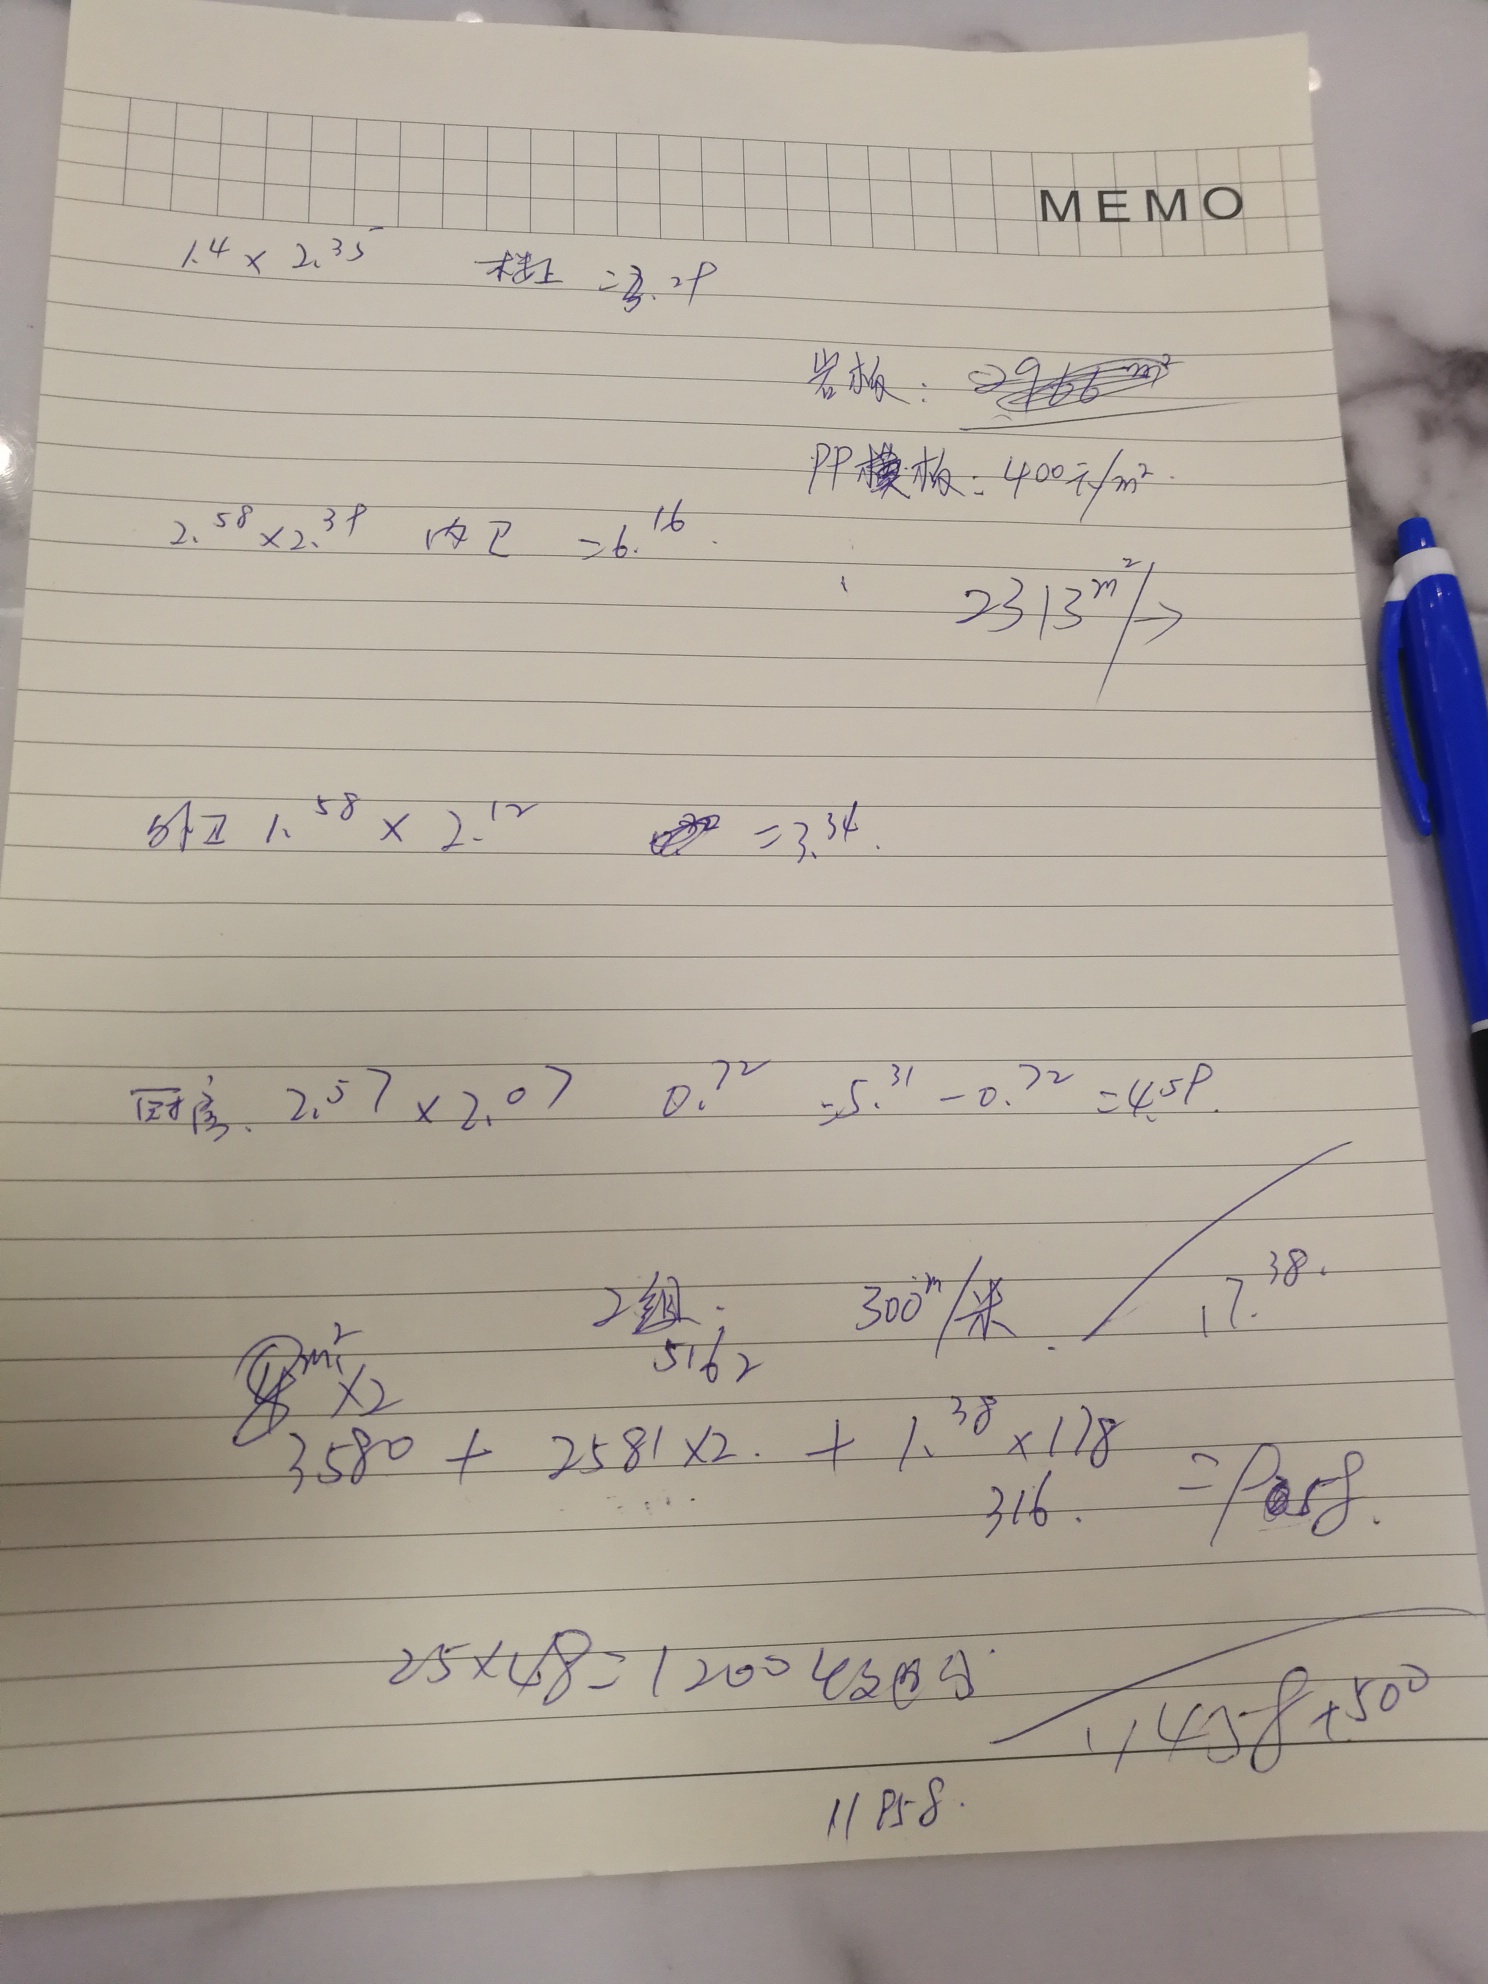 MEMO
1.4 × 2.35 楼上 = 3.29
岩板:
PP 板: 400元/m²
2.58 × 2.39 内卫 = 6.16
2313m²/
外卫 1.58 × 2.12 = 3.34.
厨房. 2.57 × 2.07 0.72 = 5.31 - 0.72 = 4.59.
2组: 300m/米. 17.38.
m² × 2 5162
3580 + 2581 × 2. + 1.38 × 178
316. =
25 × 48 = 1200
11458 + 500
11958.